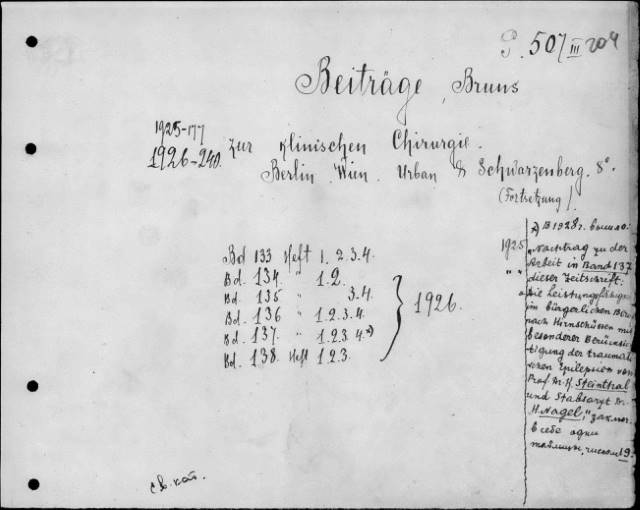 P. 507/III 204
Beiträge, Bruns
1925-177
1926-240.
zur klinischen Chirurgie.
Berlin. Wien. Urban & Schwarzenberg. 8°.
(Fortsetzung).
Bd 133 Heft 1. 2. 3. 4. 1925
Bd. 134. " 1. 2. " "
Bd. 135 " 3. 4.
Bd. 136 " 1. 2. 3. 4.
Bd. 137. " 1. 2. 3. 4. *)
Bd. 138. Heft 1. 2. 3.
1926.
*) В 1928 г. вышло:
"Nachtrag zu der
Arbeit in Band 137
dieser Zeitschrift.
Die Leistungsfähigkeit
im bürgerlichen Beruf
nach Hirnschüssen mit
besonderer Berücksich
tigung der traumati
schen Epilepsie von
Prof. Dr. H. Steinthal
und Stabsarzt Dr.
H. Nagel,"
в себе одни
таблицы, числом 19.
св. кат.